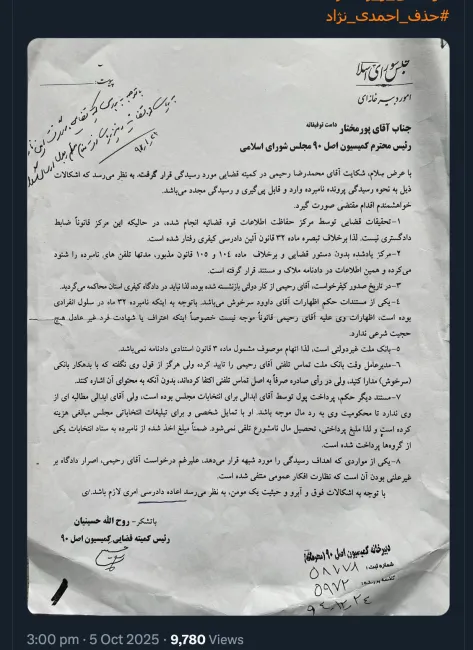 #حذف_احمدی_نژاد
مجلس شورای اسلامی
امور دبیرخانه‌ای
پیوست:
جناب آقای پورمختار دامت توفیقاته
رئیس محترم کمیسیون اصل ۹۰ مجلس شورای اسلامی
با عرض سلام، شکایت آقای محمدرضا رحیمی در کمیته قضایی مورد رسیدگی قرار گرفت. به نظر می‌رسد که اشکالات
ذیل به نحوه رسیدگی پرونده نامبرده وارد و قابل پی‌گیری و رسیدگی مجدد می‌باشد.
خواهشمندم اقدام مقتضی صورت گیرد.
۱-تحقیقات قضایی توسط مرکز حفاظت اطلاعات قوه قضائیه انجام شده، در حالیکه این مرکز قانوناً ضابط
دادگستری نیست. لذا برخلاف تبصره ماده ۳۲ قانون آئین دادرسی کیفری رفتار شده است.
۲-مرکز یادشده بدون دستور قضایی و برخلاف ماده ۱۰۴ و ۱۰۵ قانون مذبور، مدتها تلفن های نامبرده را شنود
می‌کرده و همین اطلاعات در دادنامه ملاک و مستند قرار گرفته است.
۳-در تاریخ صدور کیفرخواست، آقای رحیمی از کار دولتی بازنشسته شده بود، لذا نباید در دادگاه کیفری استان محاکمه می‌گردید.
۴-یکی از مستندات حکم اظهارات آقای داوود سرخوش می‌باشد. باتوجه به اینکه نامبرده ۳۲ ماه در سلول انفرادی
بوده است، اظهارات وی علیه آقای رحیمی قانوناً موجه نیست خصوصاً اینکه اعتراف یا شهادت فرد غیر عادل هیچ
حجیت شرعی ندارد.
۵-بانک ملت غیردولتی است، لذا اتهام موصوف مشمول ماده ۳ قانون استنادی دادنامه نمی‌باشد.
۶-مدیرعامل وقت بانک ملت تماس تلفنی آقای رحیمی را تایید کرده ولی هرگز از قول وی نگفته که با بدهکار بانکی
(سرخوش) مدارا کنید، ولی در رأی صادره صرفاً به اصل تماس تلفنی اکتفا کرده‌اند، بدون آنکه به محتوای آن اشاره کنند.
۷-مستند دیگر حکم، پرداخت پول توسط آقای ابدالی برای انتخابات مجلس بوده است، ولی آقای ابدالی مطالبه ای از
وی ندارد تا محکومیت وی به رد مال موجه باشد. او با تمایل شخصی و برای تبلیغات انتخاباتی مجلس مبالغی هزینه
کرده است و لذا مبلغ پرداختی، تحصیل مال نامشروع تلقی نمی‌شود. ضمناً مبلغ اخذ شده از نامبرده به ستاد انتخابات یکی
از گروه‌ها پرداخت شده است.
۸-یکی از مواردی که اهداف رسیدگی را مورد شبهه قرار می‌دهد، علیرغم درخواست آقای رحیمی، اصرار دادگاه بر
غیرعلنی بودن آن است که نظارت افکار عمومی منتفی شده است.
با توجه به اشکالات فوق و آبرو و حیثیت یک مومن، به نظر می‌رسد اعاده دادرسی امری لازم باشد.
باتشکر- روح الله حسینیان
رئیس کمیته قضایی کمیسیون اصل ۹۰
دبیرخانه کمیسیون اصل ۹۰ (محرمانه)
شماره ثبت: ۵۸۷۷۸
۵۹۷۲
۹۴.۱۲.۲۴
3:00 pm · 5 Oct 2025 · 9,780 Views